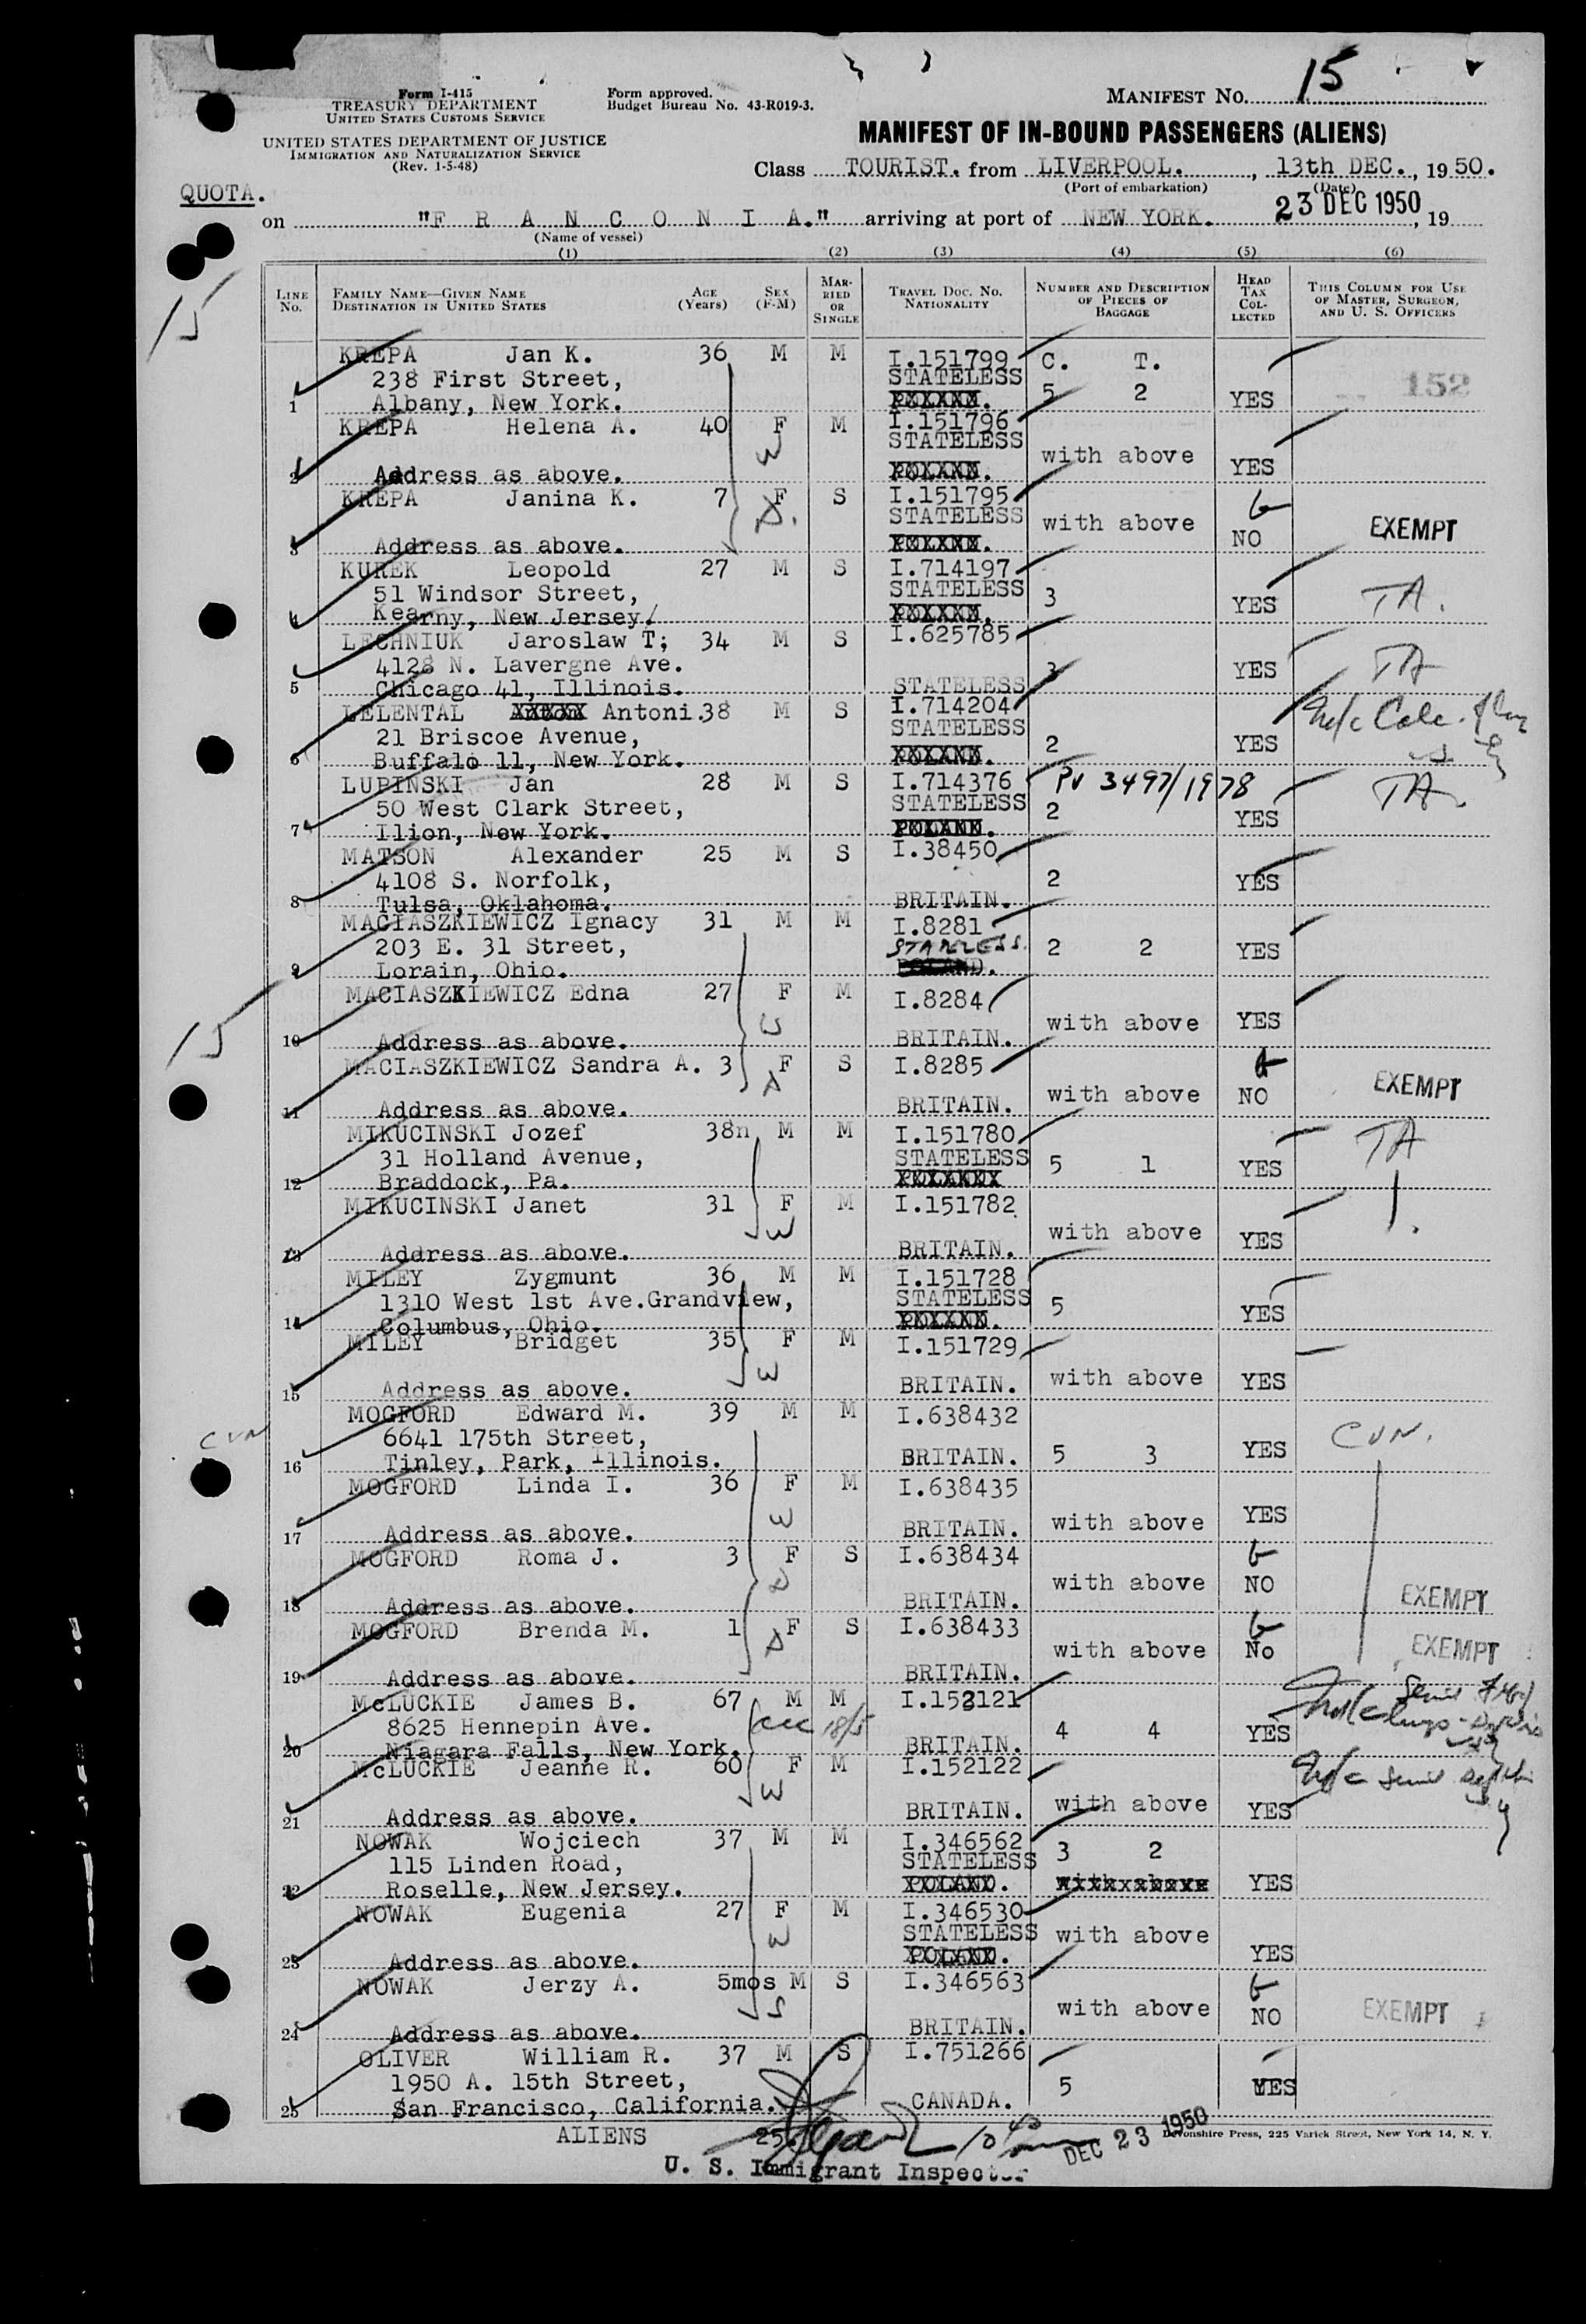 15
Form I-415
TREASURY DEPARTMENT
UNITED STATES CUSTOMS SERVICE
Form approved.
Budget Bureau No. 43-R019-3.
MANIFEST NO. 15
UNITED STATES DEPARTMENT OF JUSTICE
IMMIGRATION AND NATURALIZATION SERVICE
(Rev. 1-5-48)
MANIFEST OF IN-BOUND PASSENGERS (ALIENS)
Class TOURIST. from LIVERPOOL. , 13th DEC., 1950.
(Port of embarkation) (Date)
QUOTA.
on "F R A N C O N I A." arriving at port of NEW YORK. 23 DEC 1950, 19
(Name of vessel)
(1) (2) (3) (4) (5) (6)
LINE No. FAMILY NAME—GIVEN NAME DESTINATION IN UNITED STATES AGE (Years) SEX (F-M) MARRIED OR SINGLE TRAVEL DOC. NO. NATIONALITY NUMBER AND DESCRIPTION OF PIECES OF BAGGAGE HEAD TAX COLLECTED THIS COLUMN FOR USE OF MASTER, SURGEON, AND U. S. OFFICERS
KREPA Jan K. 36 M M I.151799 C. T.
238 First Street, STATELESS 152
1 Albany, New York. POLAND. 5 2 YES
KREPA Helena A. 40 F M I.151796
STATELESS with above
2 Address as above. POLAND. YES
KREPA Janina K. 7 F S I.151795
STATELESS with above EXEMPT
3 Address as above. POLAND. NO
KUREK Leopold 27 M S I.714197
51 Windsor Street, STATELESS 3 YES TA.
4 Kearny, New Jersey/ POLAND.
LECHNIUK Jaroslaw T; 34 M S I.625785
4128 N. Lavergne Ave. 3 YES TA
5 Chicago 41, Illinois. STATELESS
LELENTAL Anton Antoni. 38 M S I.714204
21 Briscoe Avenue, STATELESS 2 YES
6 Buffalo 11, New York. POLAND.
LUPINSKI Jan 28 M S I.714376 PV 3497/1978 TA.
50 West Clark Street, STATELESS 2 YES
7 Ilion, New York. POLAND.
MATSON Alexander 25 M S I.38450
4108 S. Norfolk, 2 YES
8 Tulsa, Oklahoma. BRITAIN.
MACIASZKIEWICZ Ignacy 31 M M I.8281
203 E. 31 Street, STATELESS. 2 2 YES
9 Lorain, Ohio. POLAND.
MACIASZKIEWICZ Edna 27 F M I.8284
with above YES
10 Address as above. BRITAIN.
15
MACIASZKIEWICZ Sandra A. 3 F S I.8285
with above NO EXEMPT
11 Address as above. BRITAIN.
MIKUCINSKI Jozef 38n M M I.151780
31 Holland Avenue, STATELESS 5 1 YES TA
12 Braddock, Pa.
MIKUCINSKI Janet 31 F M I.151782
with above YES
13 Address as above. BRITAIN.
MILEY Zygmunt 36 M M I.151728
1310 West 1st Ave.Grandview, STATELESS 5 YES
14 Columbus, Ohio. POLAND.
MILEY Bridget 35 F M I.151729
with above YES
15 Address as above. BRITAIN.
MOGFORD Edward M. 39 M M I.638432
6641 175th Street, CVN.
16 Tinley, Park, Illinois. BRITAIN. 5 3 YES
MOGFORD Linda I. 36 F M I.638435
17 Address as above. BRITAIN. with above YES
MOGFORD Roma J. 3 F S I.638434
with above NO EXEMPT
18 Address as above. BRITAIN.
MOGFORD Brenda M. 1 F S I.638433
with above No EXEMPT
19 Address as above. BRITAIN.
McLUCKIE James B. 67 M M I.152121
8625 Hennepin Ave. 4 4 YES
20 Niagara Falls, New York. BRITAIN.
McLUCKIE Jeanne R. 60 F M I.152122
21 Address as above. BRITAIN. with above YES
NOWAK Wojciech 37 M M I.346562 3 2
115 Linden Road, STATELESS
22 Roselle, New Jersey. POLAND. YES
NOWAK Eugenia 27 F M I.346530
STATELESS with above
23 Address as above. POLAND. YES
NOWAK Jerzy A. 5mos M S I.346563
with above NO EXEMPT
24 Address as above. BRITAIN.
OLIVER William R. 37 M S I.751266
1950 A. 15th Street, 5 YES
25 San Francisco, California. CANADA.
ALIENS 25.
DEC 23 1950
Devonshire Press, 225 Varick Street, New York 14, N. Y.
U. S. Immigrant Inspector